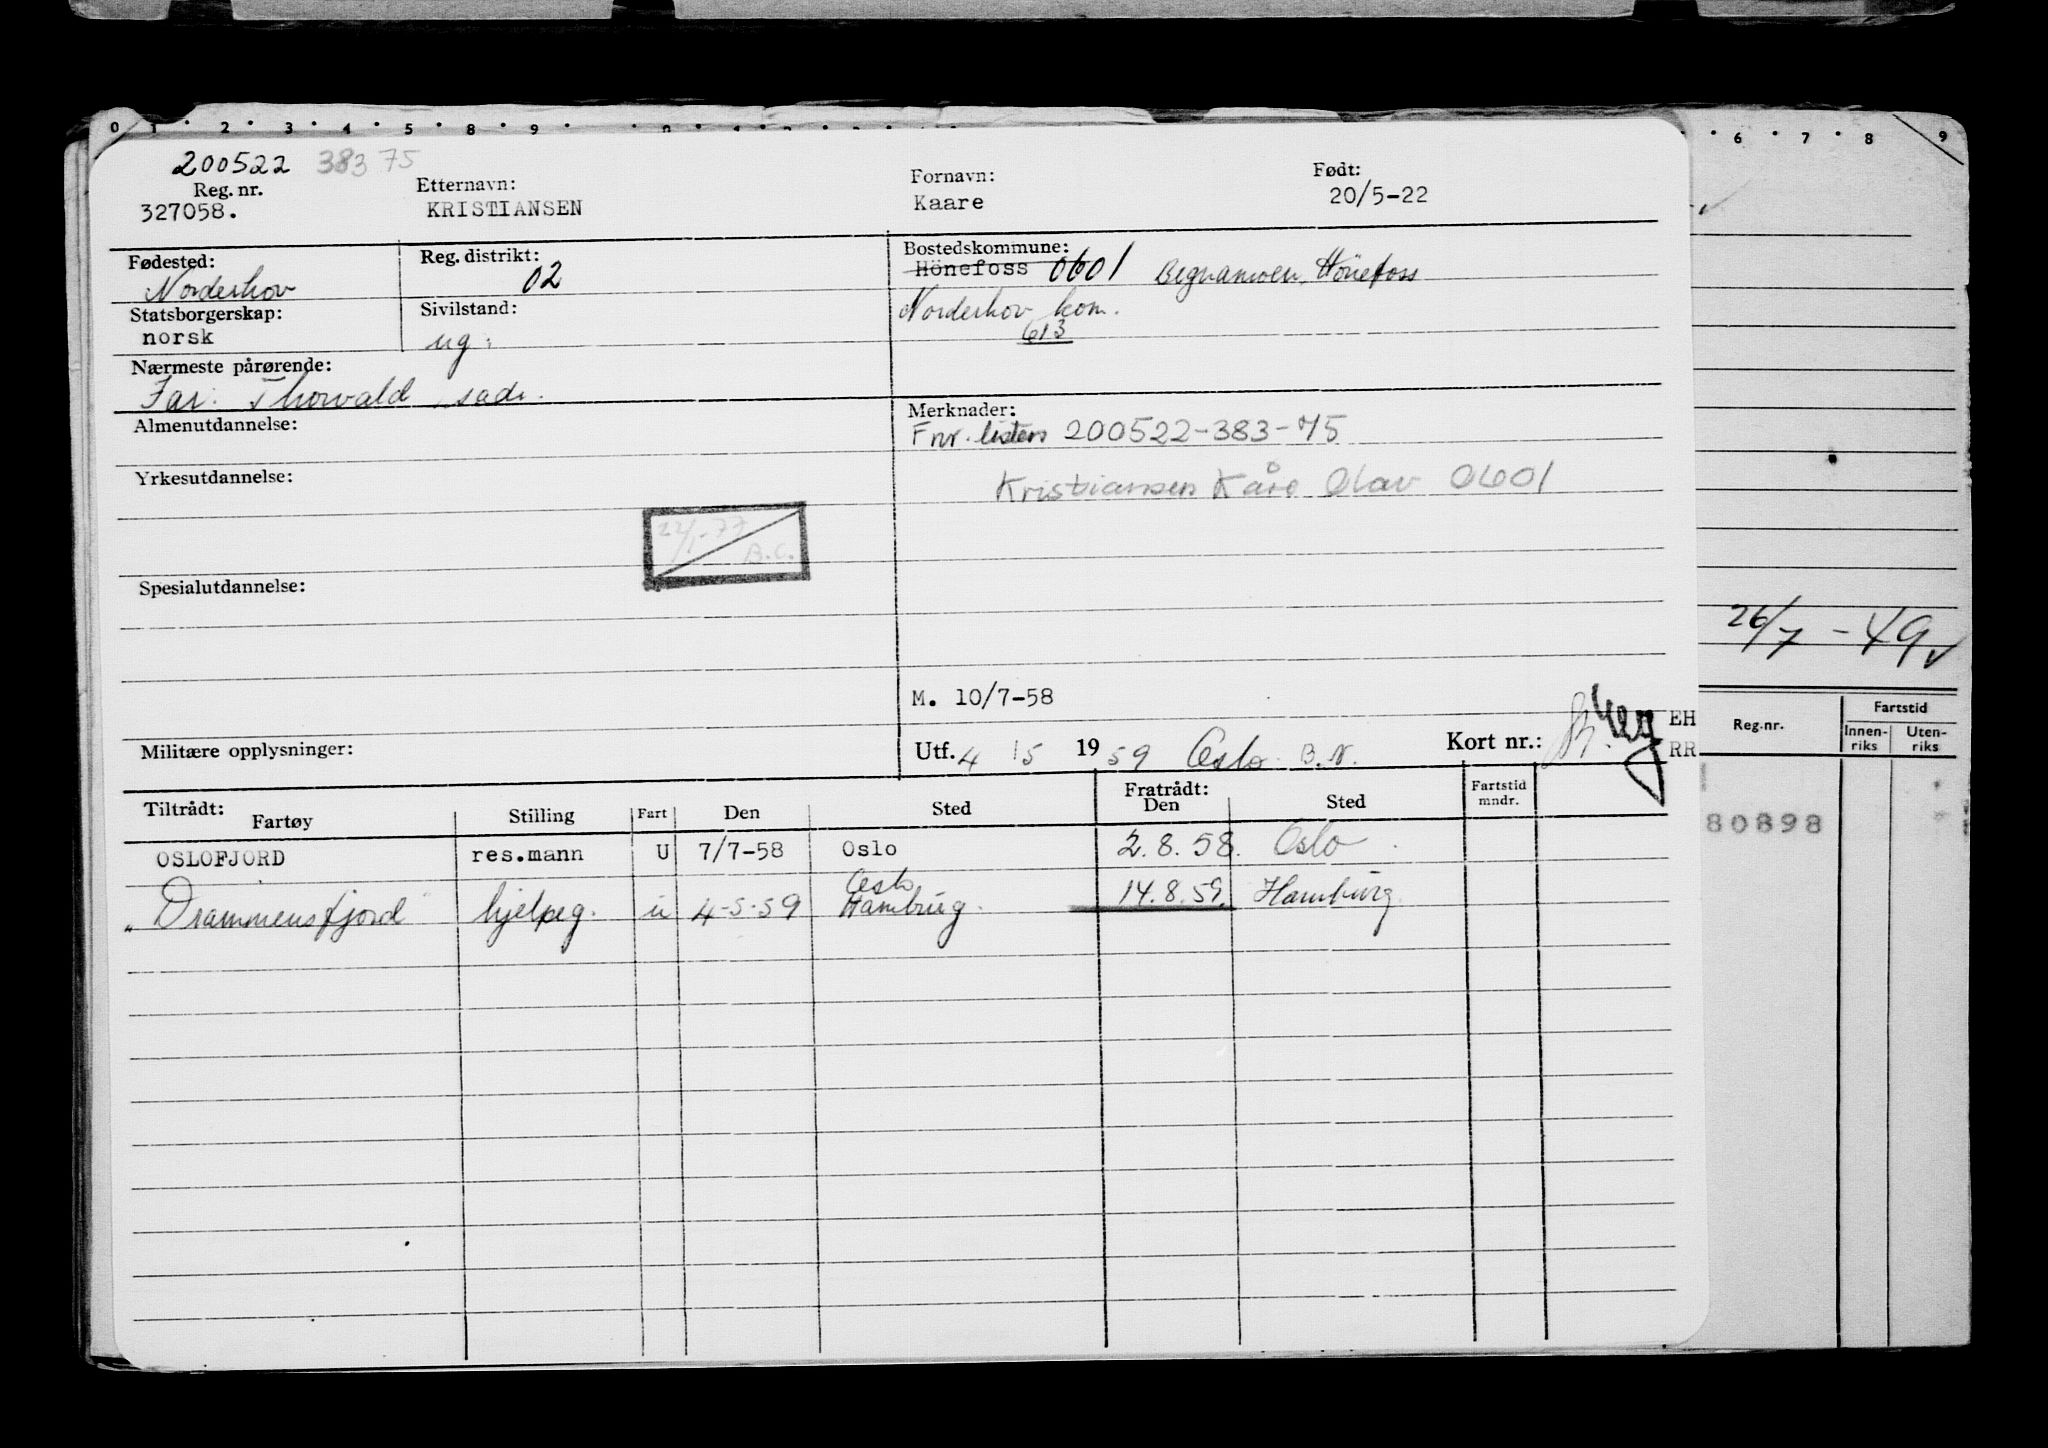 0 1 2 3 4 5 8 9
6 7 8 9
200522 383 75
Reg. nr. Etternavn: Fornavn: Født:
327058. KRISTIANSEN Kaare 20/5-22
Fødested: Reg. distrikt: Bostedskommune:
Norderhov 02 Hönefoss 0601 Begnamoen, Hönefoss
Statsborgerskap: Sivilstand: Norderhov kom.
norsk ug. 613
Nærmeste pårørende:
Far: Thorvald, sadr.
Almenutdannelse: Merknader:
Fnr. listen 200522-383-75
Yrkesutdannelse: Kristiansen Kåre Olav 0601
22/1-77
B.C.
Spesialutdannelse:
26/7 - 49
M. 10/7-58
Militære opplysninger: Utf. 4 / 5 19 59 Oslo B.N. Kort nr.: EH
RR
Reg.nr. Fartstid
Innen-riks Uten-riks
Tiltrådt: Fratrådt: Fartstid mndr.
Fartøy Stilling Fart Den Sted Den Sted
80898
OSLOFJORD res.mann U 7/7-58 Oslo 2.8.58. Oslo
Oslo
"Drammensfjord" hjelpeg. u 4-5-59 Hamburg. 14.8.59. Hamburg.